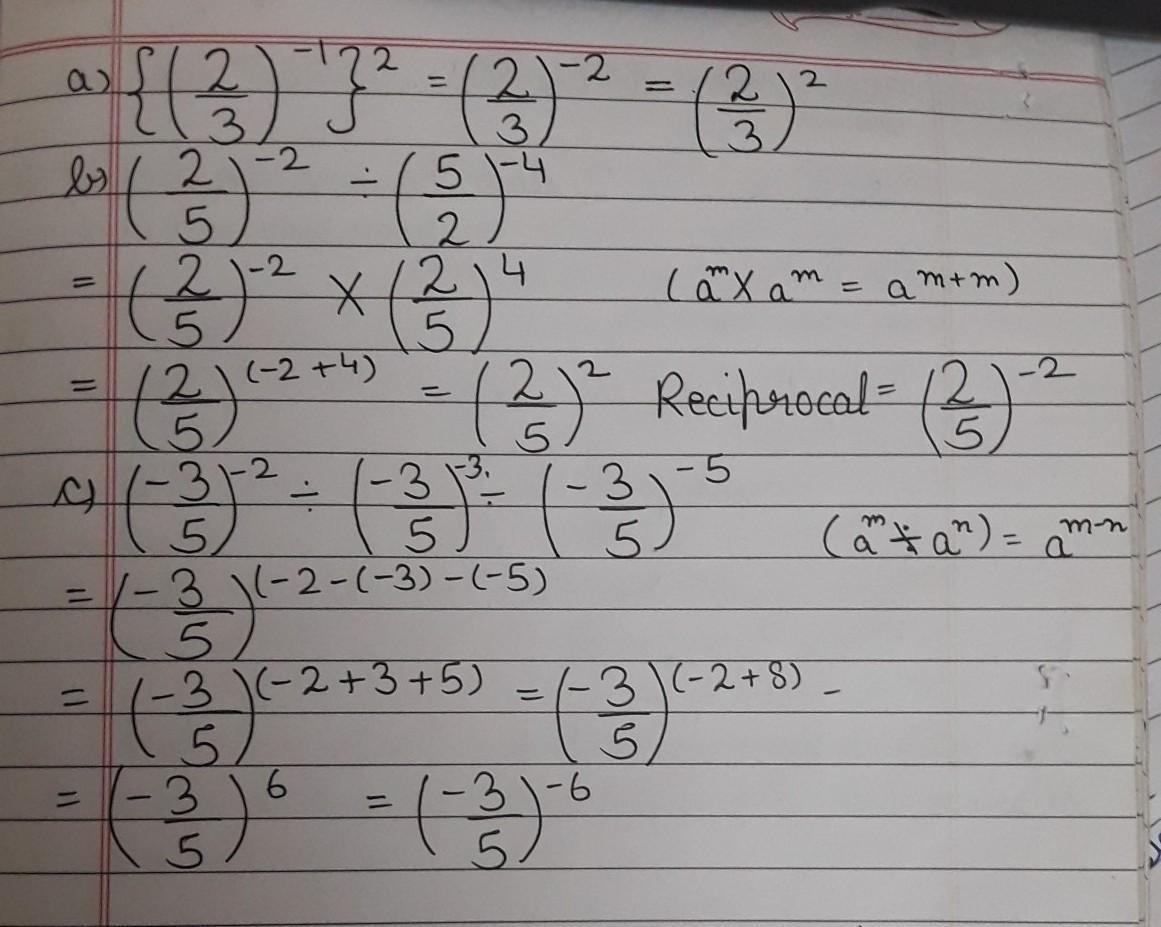 a) {(2/3)^-1}^2 = (2/3)^-2 = (2/3)^2
b) (2/5)^-2 ÷ (5/2)^-4
= (2/5)^-2 X (2/5)^4 (a^m X a^m = a^m+m)
= (2/5)^(-2+4) = (2/5)^2 Reciprocal = (2/5)^-2
c) (-3/5)^-2 ÷ (-3/5)^-3 ÷ (-3/5)^-5
(a^m ÷ a^n) = a^m-n
= (-3/5)^(-2-(-3)-(-5)
= (-3/5)^(-2+3+5) = (-3/5)^(-2+8) -
= (-3/5)^6 = (-3/5)^-6